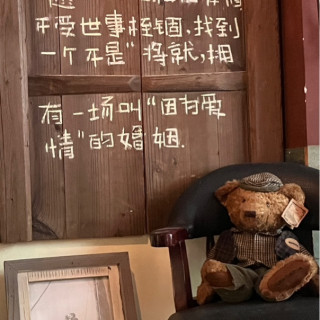 不受世事桎锢,找到
一个不是"将就,拥
有一场叫"因为爱
情"的婚姻.